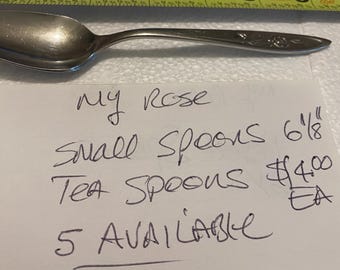 My Rose
Small Spoons 6 1/8"
Tea Spoons $14.00
EA
5 AVAILABLE